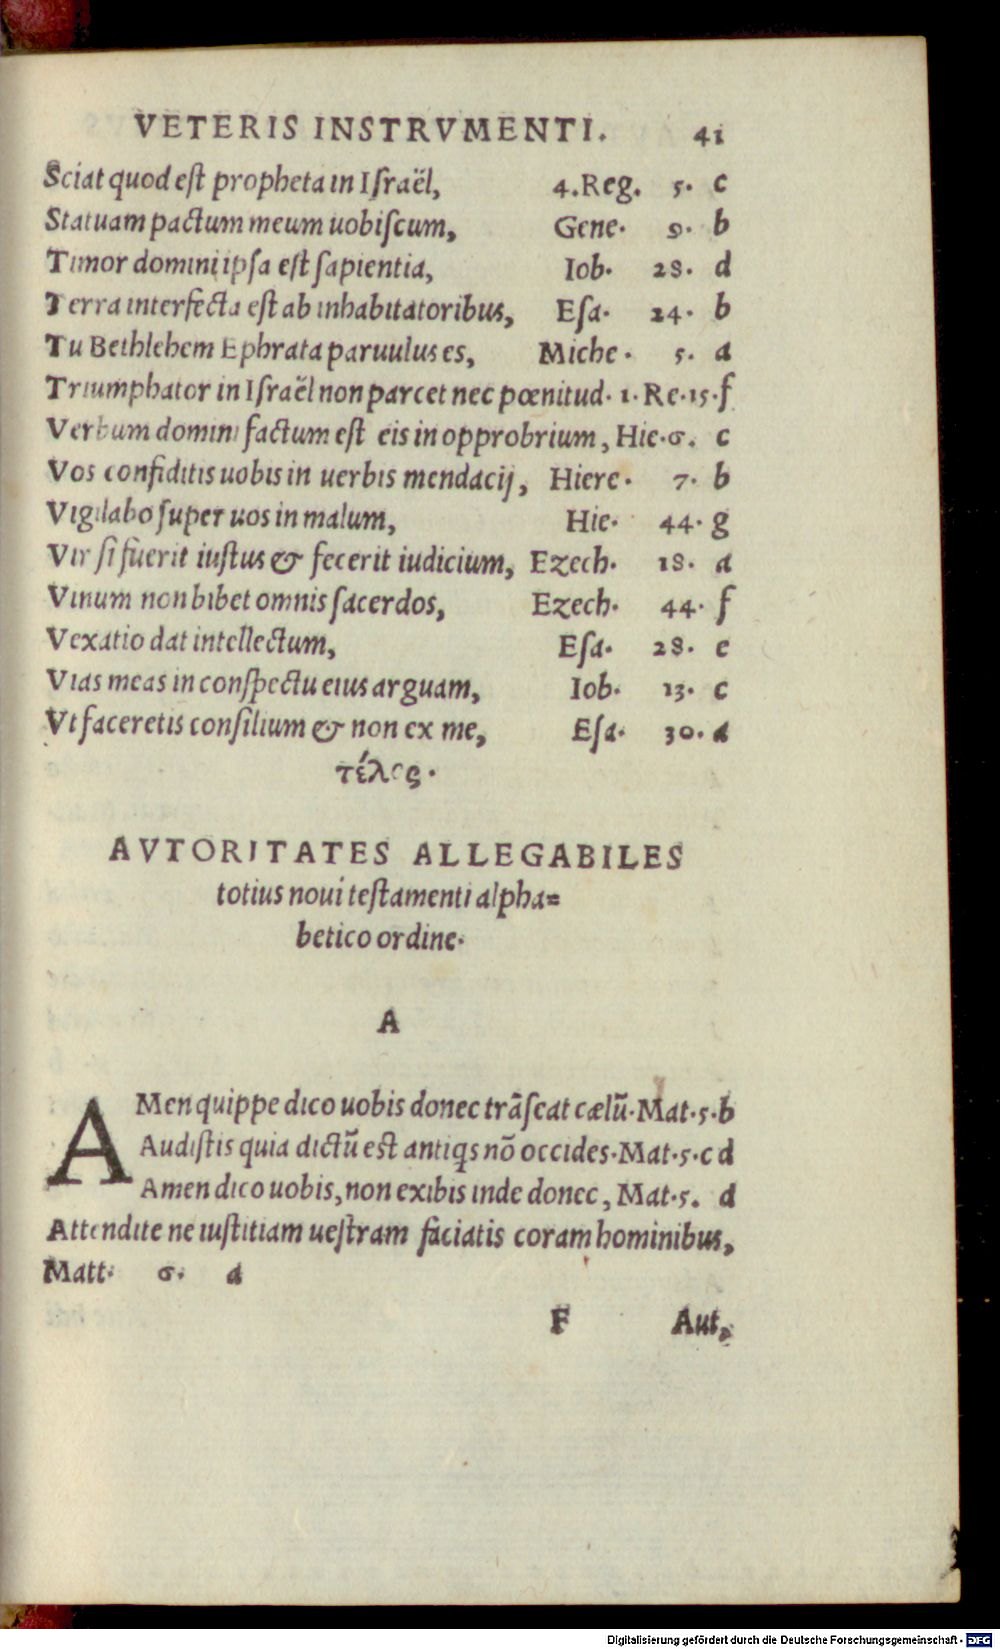 VETERIS INSTRVMENTI. 41
Sciat quod est propheta in Israël, 4.Reg. 5. c
Statuam pactum meum uobiscum, Gene. 9. b
Timor domini ipsa est sapientia, Iob. 28. d
Terra interfecta est ab inhabitatoribus, Esa. 24. b
Tu Bethlehem Ephrata paruulus es, Miche. 5. a
Triumphator in Israël non parcet nec pœnitud. 1. Re. 15. f
Verbum domini factum est eis in opprobrium, Hie. 6. c
Vos confiditis uobis in uerbis mendacij, Hiere. 7. b
Vigilabo super uos in malum, Hie. 44. g
Vir si fuerit iustus & fecerit iudicium, Ezech. 18. a
Vinum non bibet omnis sacerdos, Ezech. 44. f
Vexatio dat intellectum, Esa. 28. e
Vias meas in conspectu eius arguam, Iob. 13. c
Vt faceretis consilium & non ex me, Esa. 30. a
τέλος.
AVTORITATES ALLEGABILES
totius noui testamenti alpha=
betico ordine.
A
AMen quippe dico uobis donec trāseat cælū. Mat. 5. b
Audistis quia dictū est antiqs nō occides. Mat. 5. c d
Amen dico uobis, non exibis inde donec, Mat. 5. d
Attendite ne iustitiam uestram faciatis coram hominibus,
Matt. 6. a
F Aut,
Digitalisierung gefördert durch die Deutsche Forschungsgemeinschaft - DFG